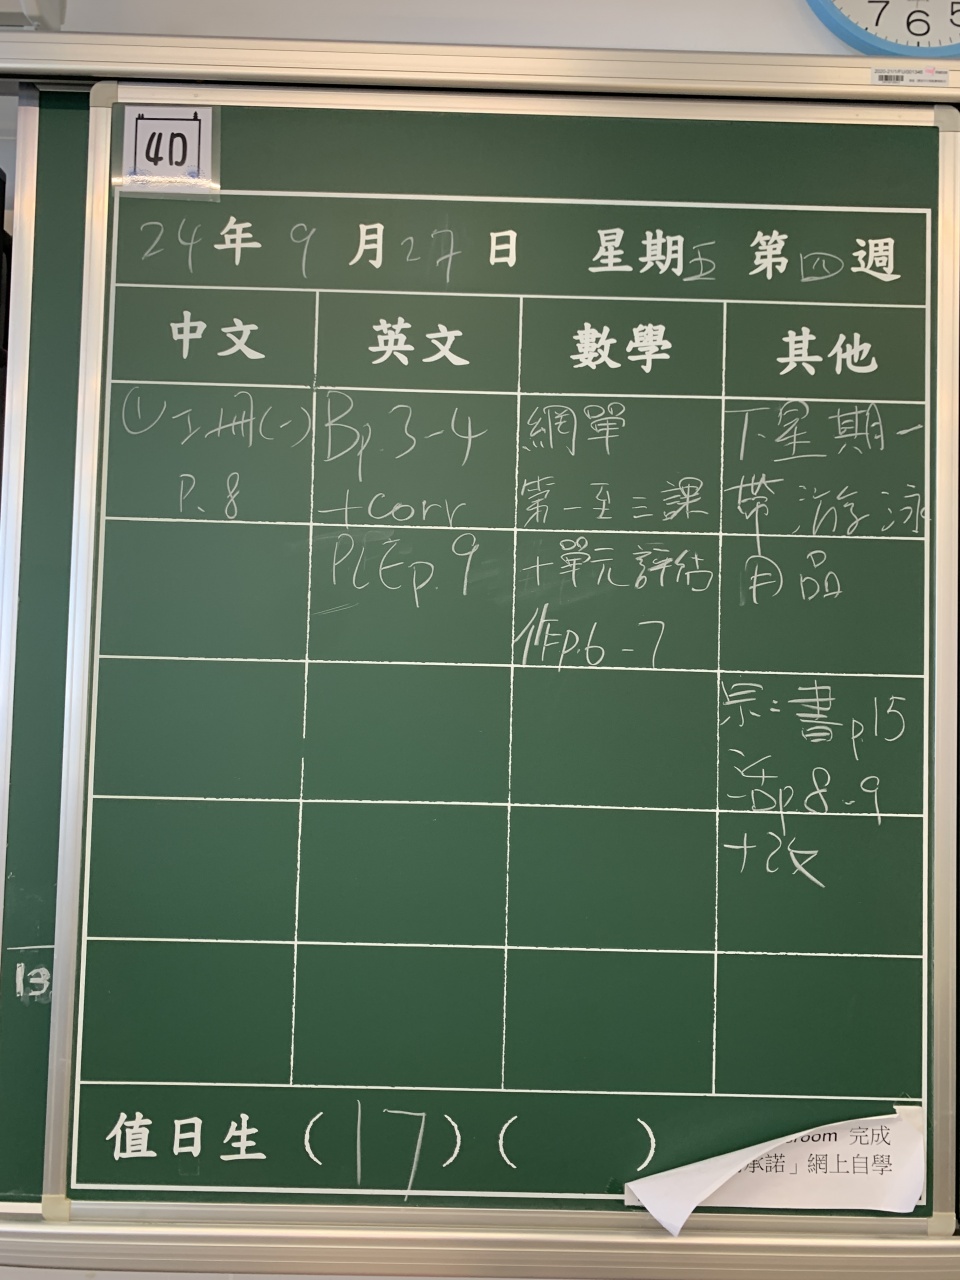 7 6 5
4D
24年 9月27日 星期五 第四週
中文 英文 數學 其他
① 工冊(一)
P. 8
Bp.3-4
+corr
PLE p.9
網單
第一至三課
+單元評估
作p.6-7
下星期一
帶游泳
用品
宗:書p.15
p.8-9
+改
值日生 (17) ( )
room 完成
承諾」網上自學
13